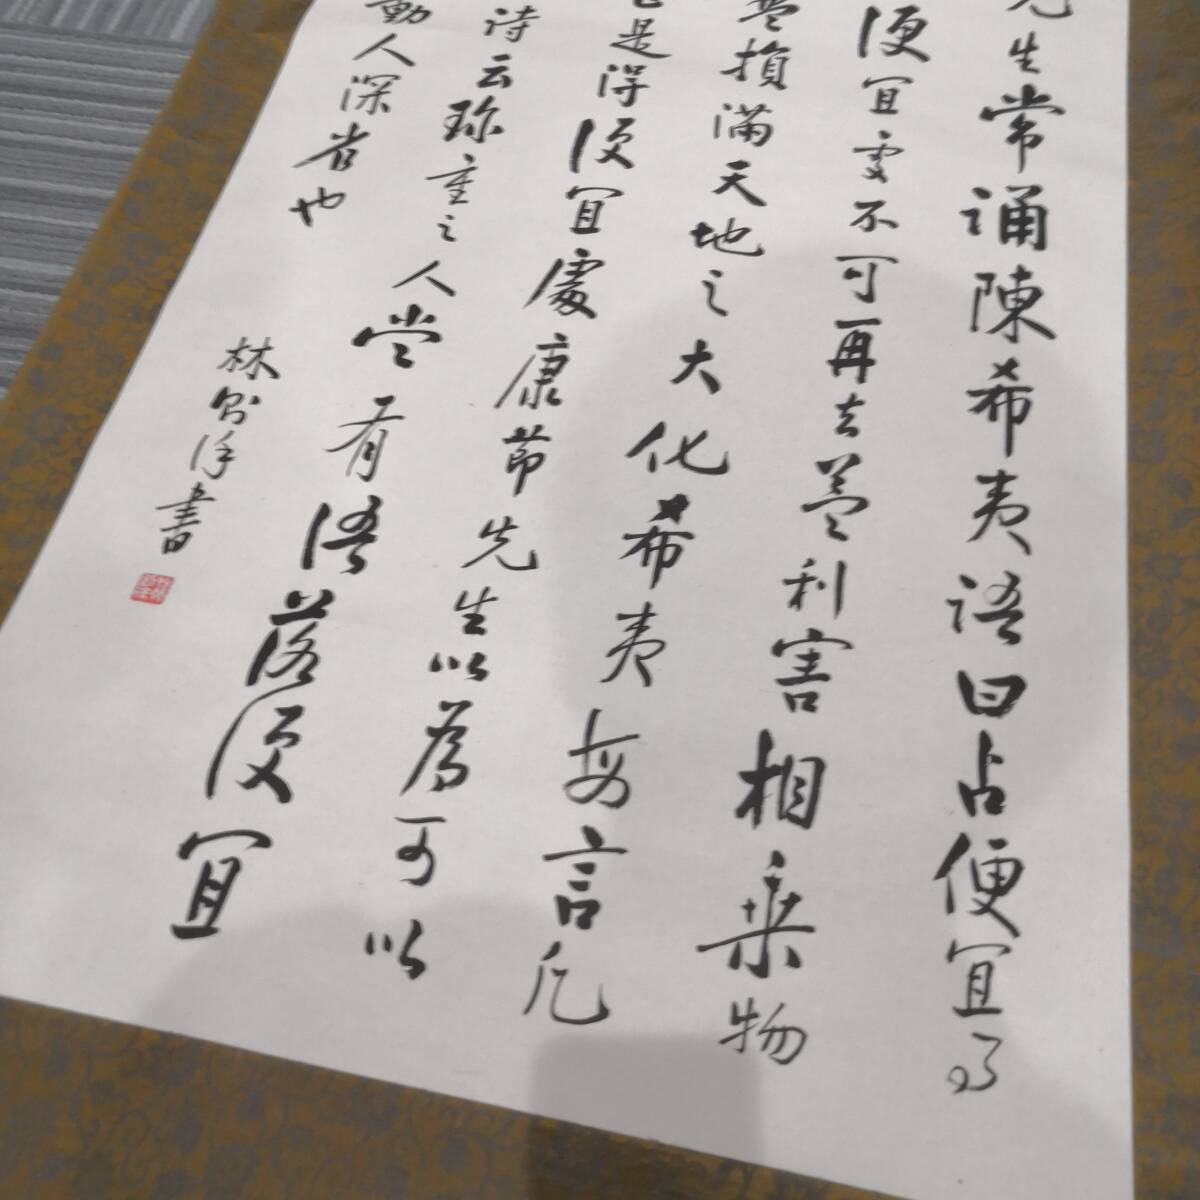 先生常誦陳希夷語曰占便宜乃
便宜處不可再去蓋利害相乘物
盈損滿天地之大化希夷每言凡
是得便宜處康節先生以為可以
詩云珍重之人尝有語落便宜
動人深省也
林則徐書